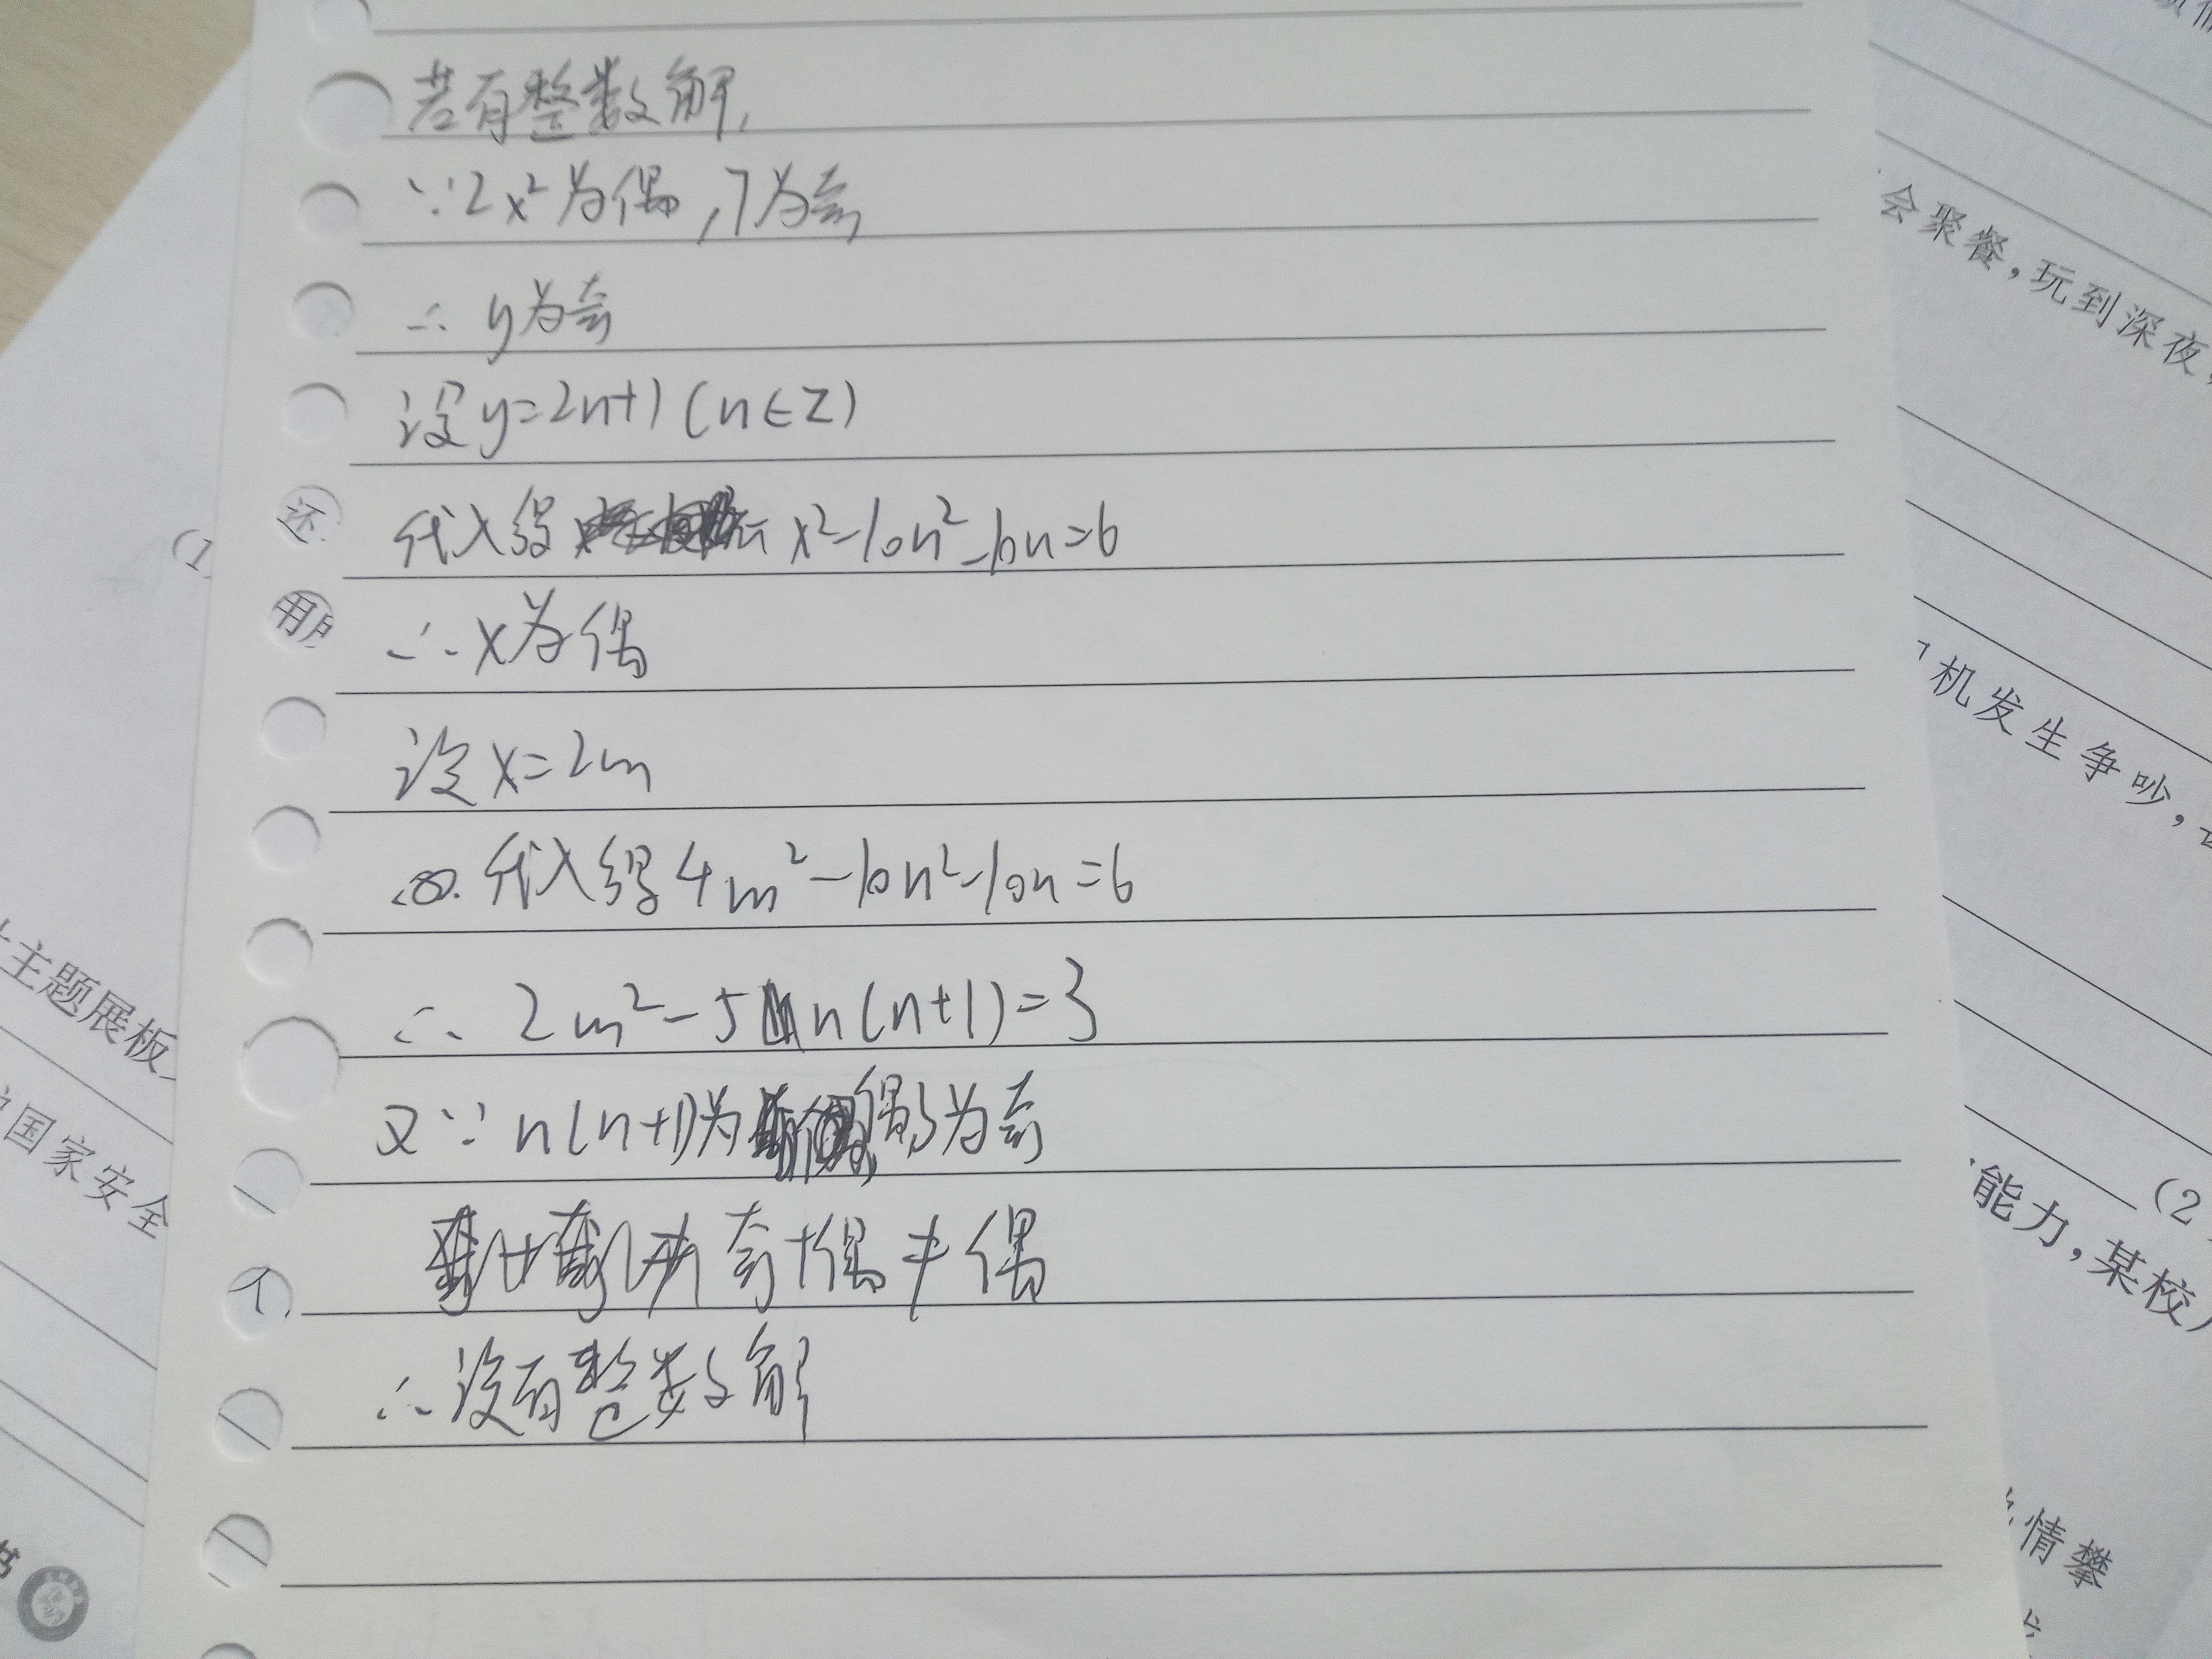 若有整数解,
∵2x²为偶,7为奇
∴ y为奇
设y=2n+1(n∈Z)
代入得 x²-10n²-10n=6
∴x为偶
设x=2m
代入得4m²-10n²-10n=6
∴ 2m²-5n(n+1)=3
又∵n(n+1)为偶,3为奇
奇+偶≠偶
∴没有整数解
还
用户
一
个
(1)
主题展板
国家安全
书
会聚餐,玩到深夜,
机发生争吵,
(2
能力,某校
情攀